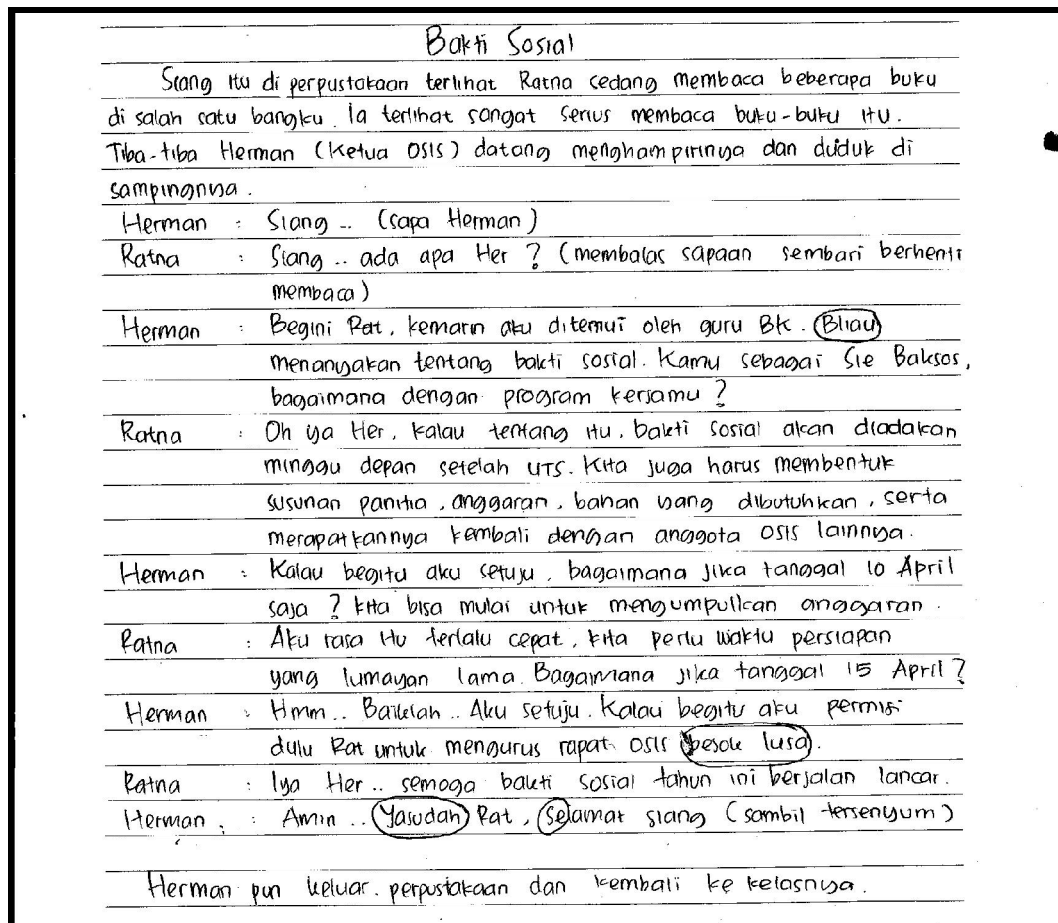 Bakti Sosial
Siang itu di perpustakaan terlihat Ratna cedang membaca beberapa buku
di salah catu bangku. Ia terlihat sangat serius membaca buku-buku itu.
Tiba-tiba Herman (Ketua OSIS) datang menghampirinya dan duduk di
sampingnya.
Herman : Siang .. (sapa Herman)
Ratna : Siang .. ada apa Her ? (membalas sapaan sembari berhenti
membaca)
Herman : Begini Rat, kemarin aku ditemui oleh guru BK. Bliau
menanyakan tentang bakti sosial. Kamu sebagai Sie Baksos,
bagaimana dengan program kerjamu ?
Ratna : Oh ya Her, kalau tentang itu, bakti sosial akan diadakan
minggu depan setelah UTS. Kita juga harus membentuk
susunan panitia, anggaran, bahan yang dibutuhkan, serta
merapatkannya kembali dengan anggota OSIS lainnya.
Herman : Kalau begitu aku setuju, bagaimana jika tanggal 10 April
saja ? kita bisa mulai untuk mengumpulkan anggaran.
Ratna : Aku rasa itu terlalu cepat, kita perlu waktu persiapan
yang lumayan lama. Bagaimana jika tanggal 15 April ?
Herman : Hmm .. Baiklah .. Aku setuju. Kalau begitu aku permisi
dulu Rat untuk mengurus rapat OSIS besok lusa.
Ratna : Iya Her .. semoga bakti sosial tahun ini berjalan lancar.
Herman : Amin .. Yasudah Rat, Selamat siang (sambil tersenyum)
Herman pun keluar perpustakaan dan kembali ke kelasnya.